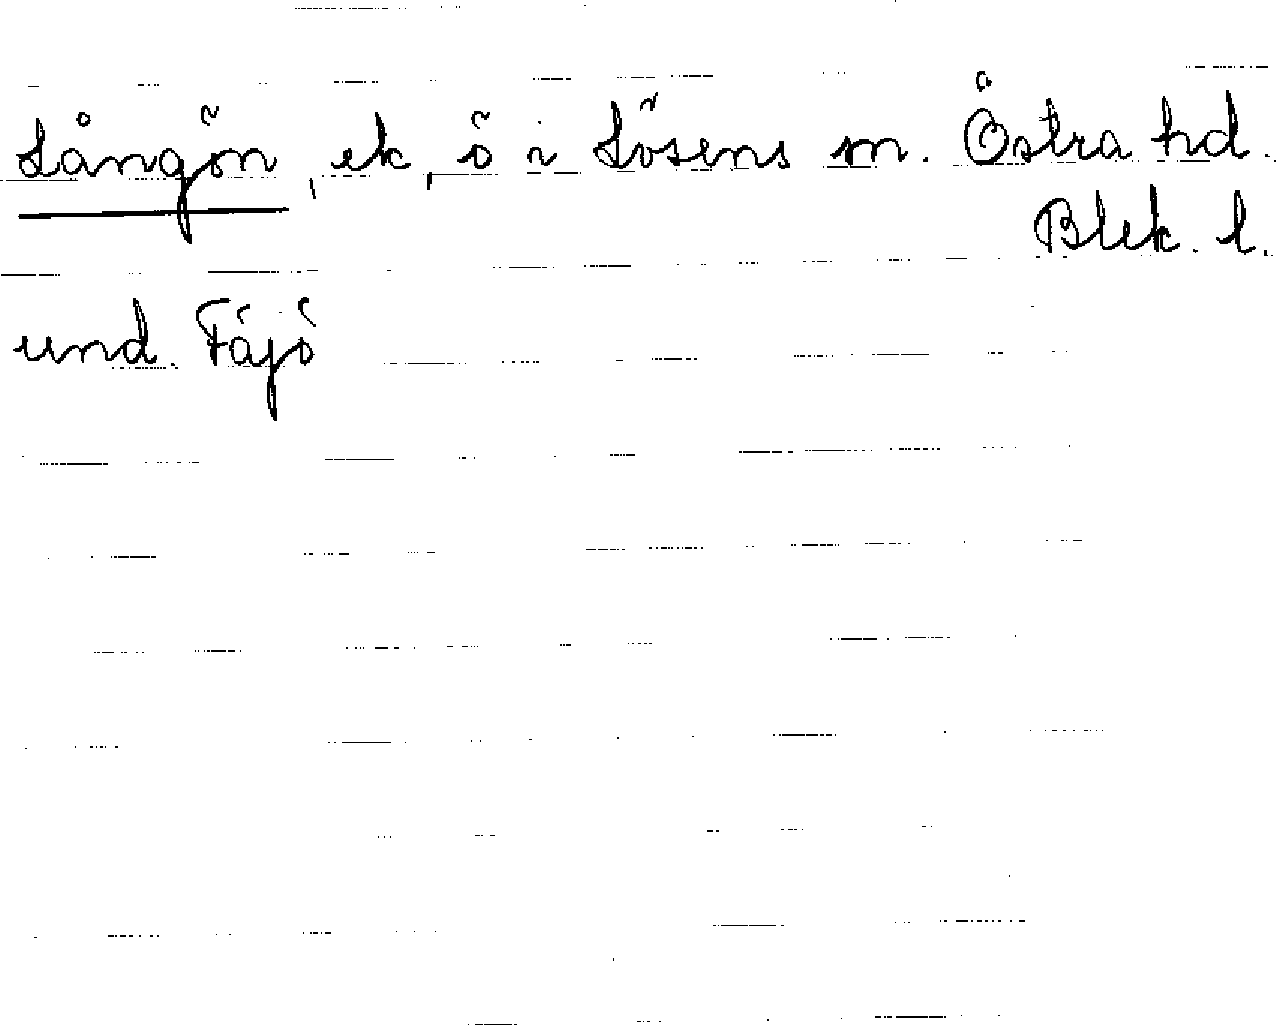 Långön, ek, ö i Lösens sn. Östra hd.
Blek. l.
und. Fäjö